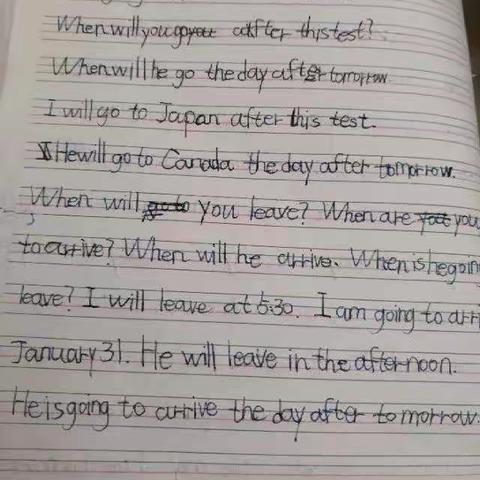 When will you go after this test?
When will he go the day after tomorrow.
I will go to Japan after this test.
He will go to Canada the day after tomorrow.
When will you leave? When are you
to arrive? When will he arrive. When is he goin
leave? I will leave at 5:30. I am going to arri
January 31. He will leave in the afternoon.
He is going to arrive the day after tomorrow.